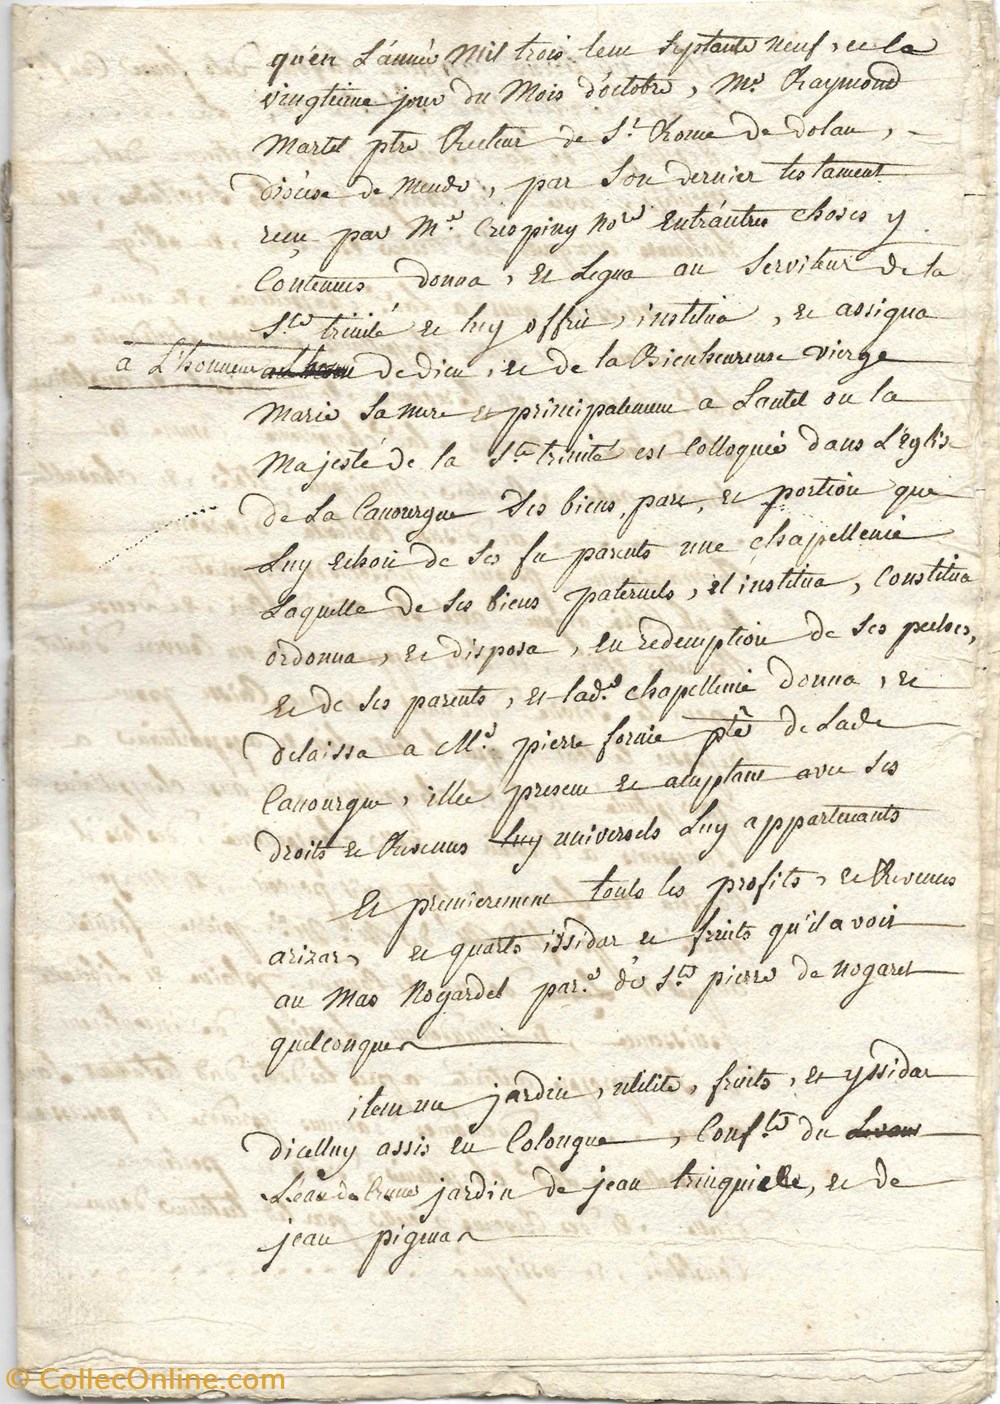 qu'en L'année Mil trois Cent septante neuf, et la
vingtieme jour du Mois d'octobre, Mre Raymond
Martel ptre Recteur de St Rome de dolan,
diocese de Mende, par son dernier testament
receu par Me Crespiny Nore Entr'autres choses y
Contenues donna, Et Legua au Serviteur de la
Ste trinité et luy offrit, institua, et assigna
à L'honneur de dieu, et de la Bienheureuse vierge
Marie Sa mere et principalement a Lautel ou la
Majesté de la Ste trinité est Colloquée dans L'Eglise
de La Canourgue Ses biens, part, et portion que
Luy Echoit de Ses fu parents une chapellenie
Laquelle de Ses biens paternels, Et institua, Constitua
ordonna, et disposa, en redemption de Ses peches,
et de Ses parents, Et lade chapellenie donna, et
delaissa a Mre pierre fornie ptre de Lade
Canourgue, illec present et acceptant avec Ses
droits et Revenus luy universels Luy appartenants
Et premierement touts les profits, et Revenus
arizar, et quarts issidar et fruits qu'il avoit
au Mas Nogardel parse de St pierre de nogaret
quelconque
item un jardin, utilité, fruits, et yssidar
dicelluy assis en Colongue, Confte du Levant
L'eau de jardin de jean trinquiere, et de
jean pigna
© CollecOnline.com